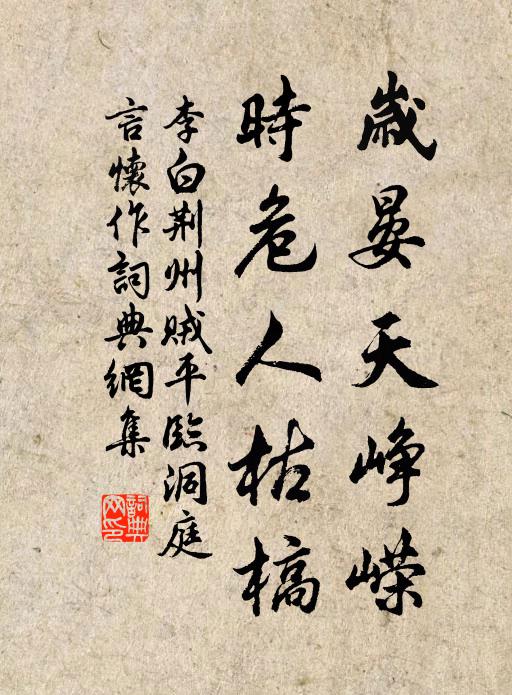 歲晏天崢嶸
時危人枯槁
李白荊州賊平臨洞庭
言懷作詞典網集
詞典网印